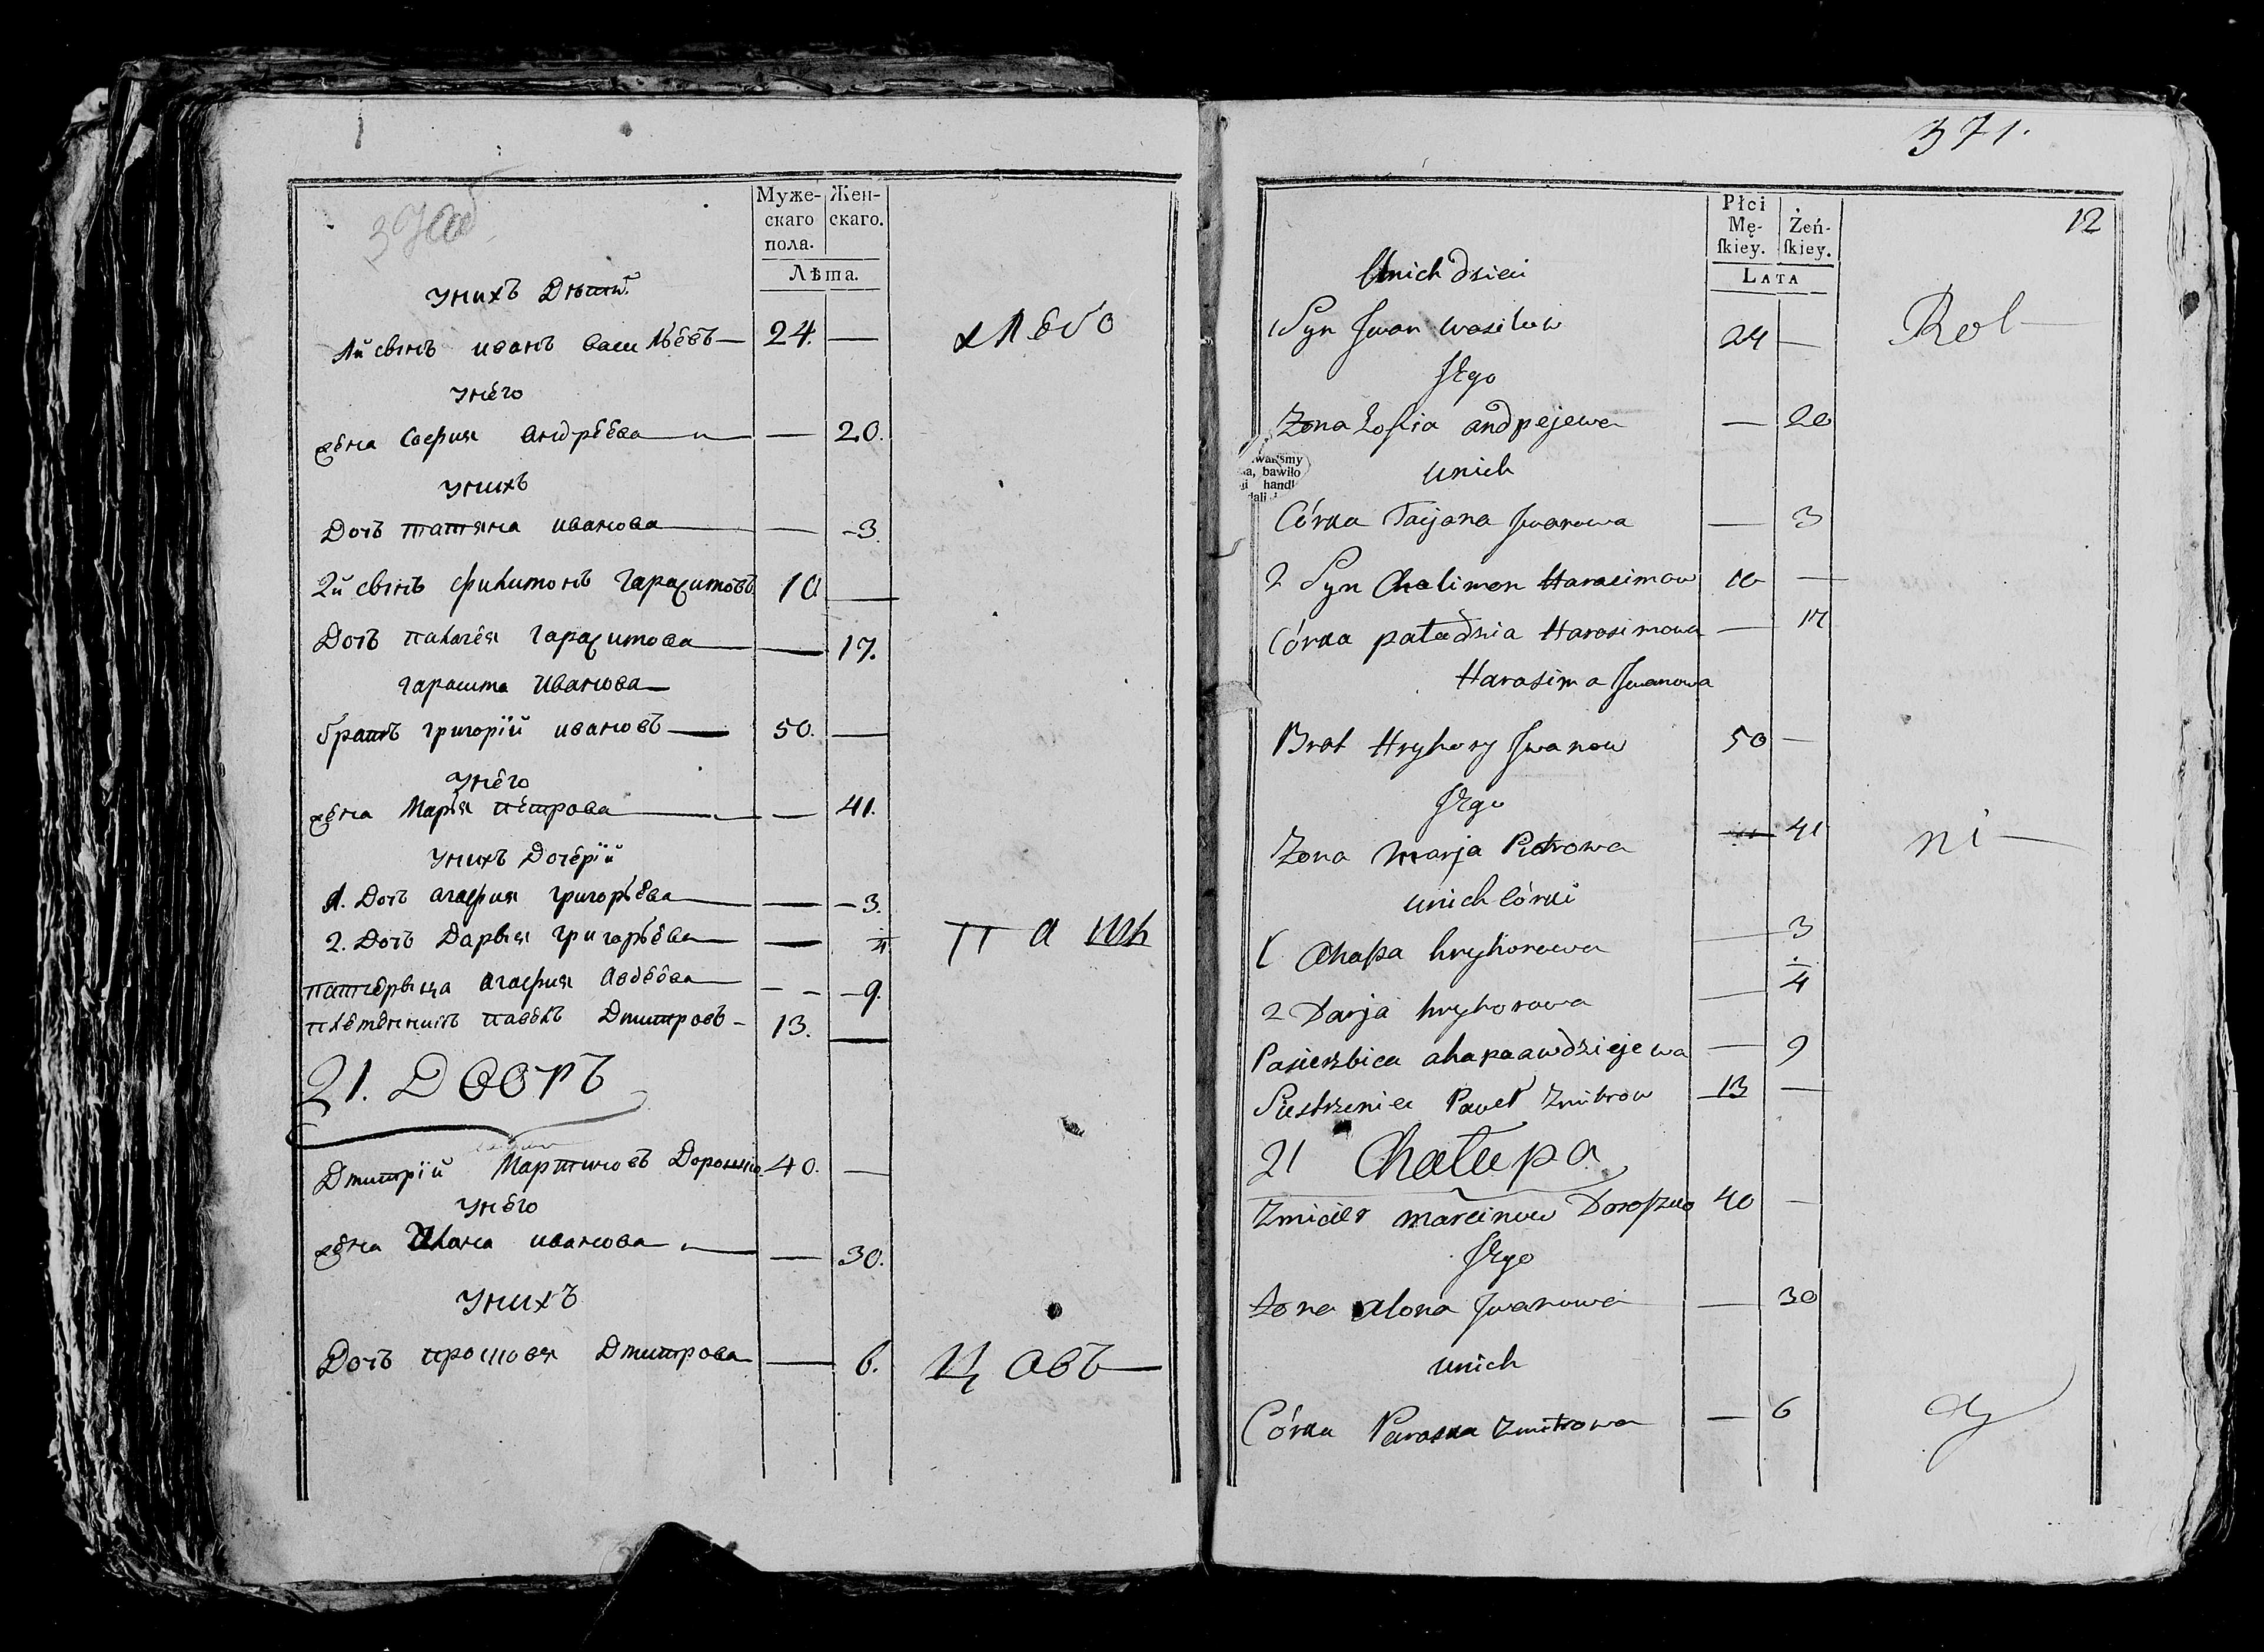 Муже-
скаго
пола.
Жен-
скаго.
Лѣта.
унихъ Дѣти
1й сынъ иванъ васильевъ — 24. —
унего
жена София андрѣева — 20.
унихъ
Дочь татяна иванова — 3.
2й сынъ филимонъ Гарасимовъ 10. —
Дочь палагея гарасимова — 17.
гарасима Иванова
братъ григорій ивановъ — 50. —
унего
жена Марья петрова — 41.
унихъ Дочерїй
1. Дочь агафия григорьева — 3.
2. Дочь Дарья григорьева —
патчерыца агафия Авдеева — 9.
племенникъ павелъ Дмитровъ 13. —
21. Дворъ
Дмитрїй Мартиновъ 40. —
унего
жена Алона иванова — 30.
унихъ
Дочь прошовя Дмитрова — 6.
хлебо
па шь
цовъ
371.
12
Płci
Mę-
ſkiey.
Żeń-
ſkiey.
LATA
Unich dzieci
1 Syn Jwan wasilew 24 —
Jego
Zona Zofia andrejewa — 20
unich
Córka Tacjana Jwanowa — 3
2 Syn Chalimon Harasimow 10 —
Córka Harasimowa — 17
Harasima Jwanowa
Brat Hryhory Jwanow 50 —
Jego
Zona Marja Piotrowa — 41
unich córki
1 Ahapa hryhorowa — 3
2 Darja hryhorowa —
Pasierzbica ahapa awdziejewa — 9
Siestrzeniec Paweł Zmitrow 13 —
21 Chałupa
Zmicier marcinow Doroszko 40 —
Jego
żona alona Jwanowa — 30
unich
Córka Paraska Zmitrowa — 6
Rol
ni
cy